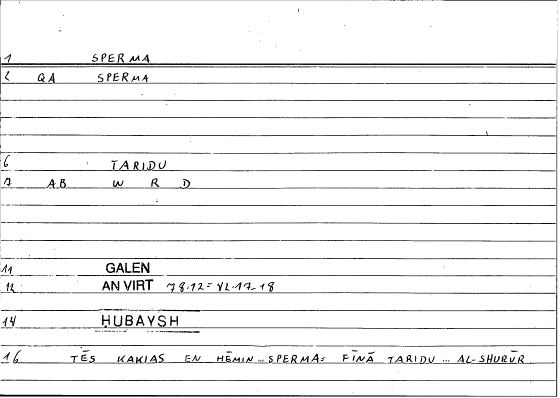 1 SPERMA
2 QA SPERMA
6 TARIDU
7 AB W R D
11 GALEN
12 AN VIRT 78.12 = 42.17-18
14 ḤUBAYSH
16 TĒS KAKIAS EN HĒMIN... SPERMA = FĪNĀ TARIDU ... AL-SHURŪR